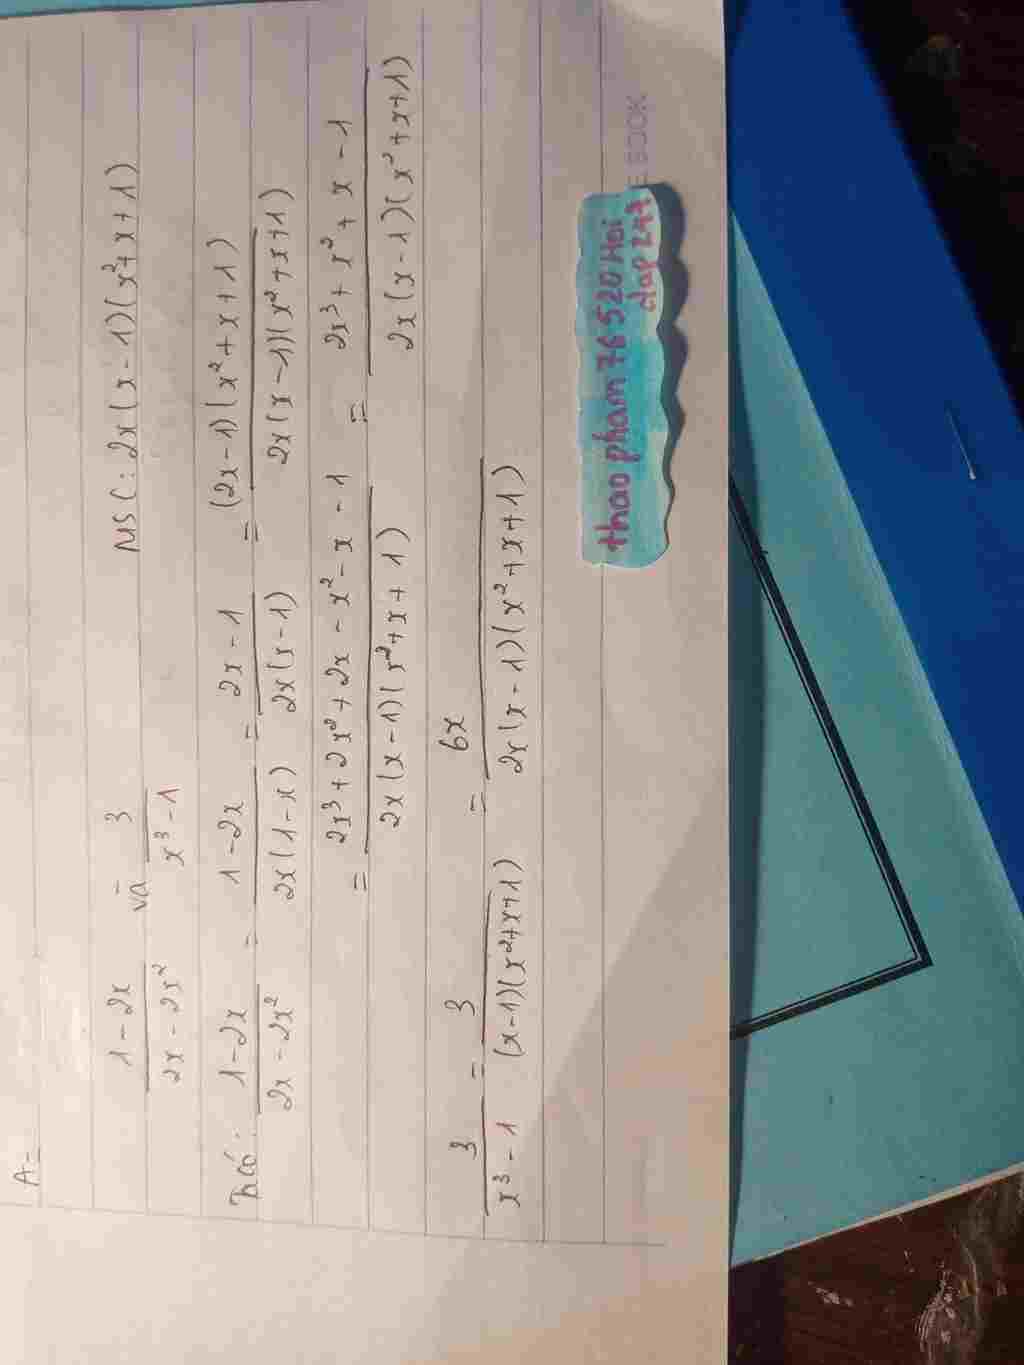 A-
1-2x/2x-2x² và 3/x³-1 MSC: 2x(x-1)(x²+x+1)
Ta có: 1-2x/2x-2x² = 1-2x/2x(1-x) = 2x-1/2x(x-1) = (2x-1)(x²+x+1)/2x(x-1)(x²+x+1)
= 2x³+2x²+2x-x²-x-1/2x(x-1)(x²+x+1) = 2x³+x²+x-1/2x(x-1)(x²+x+1)
3/x³-1 = 3/(x-1)(x²+x+1) = 6x/2x(x-1)(x²+x+1)
thao pham 76 520 Hoi
dap 247
EBOOK